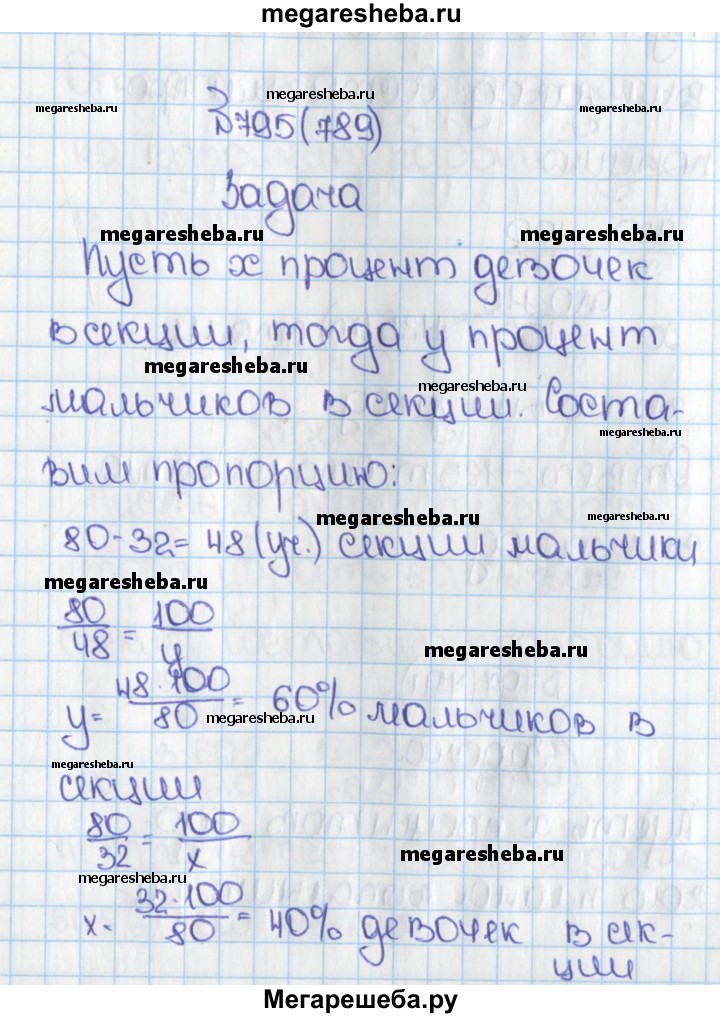 megaresheba.ru
megaresheba.ru
megaresheba.ru megaresheba.ru
№795(789)
Задача
megaresheba.ru megaresheba.ru
Пусть x процент девочек
в секции, тогда y процент
megaresheba.ru
megaresheba.ru
мальчиков в секции. Соста-
megaresheba.ru
вим пропорцию:
megaresheba.ru megaresheba.ru
80-32=48(уч.) секции мальчики
megaresheba.ru
80/48=100/y
megaresheba.ru
y=48·100/80=60% мальчиков в
megaresheba.ru
megaresheba.ru
секции
80/32=100/x
megaresheba.ru
megaresheba.ru
x=32·100/80=40% девочек в сек-
ции
Мегарешеба.ру